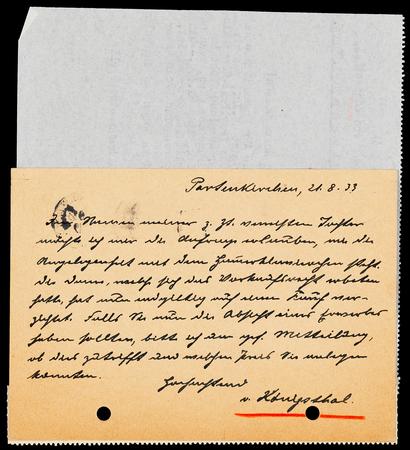 Partenkirchen, 21.8.33
Im Namen meiner z. Zt. verreisten Tochter
möchte ich mir die Anfrage erlauben, wie die
Angelegenheit mit dem steht.
Die Dame, welche sich das Vorkaufsrecht erbeten
hatte, hat nun endgiltig auf einen Kauf ver-
zichtet. Falls Sie nun die Absicht eines Erwerbes
haben sollten, bitte ich um gef. Mitteilung,
ob dies zutrifft und welchen Preis Sie anlegen
könnten.
Hochachtend
v. Königsthal.